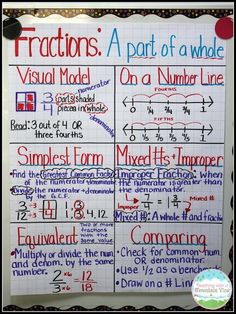 Fractions: A part of a whole
Visual Model
3 parts shaded
4 pieces in whole
numerator
denominator
Read: 3 out of 4 OR
three fourths
On a Number Line
Fourths
0 1/4 2/4 3/4 1
Fifths
Simplest Form
Find the Greatest Common Factor
of the numerator + denominator
Divide the numerator + denominator
by the G.C.F.
3 ÷3
12 ÷3
1
4
Mixed #s + Improper
Improper Fraction: When
the numerator is greater
than the denominator.
Improper
Mixed #
Mixed #: A whole # and fraction
Equivalent
Two or more
fractions
with the
same value
Multiply or divide the num.
and denom. by the same
number.
2 ×6 = 12
3 ×6 18
Comparing
Check for Common num.
OR denominator.
Use 1/2 as a benchmark
Draw on a # Line
Mountain View